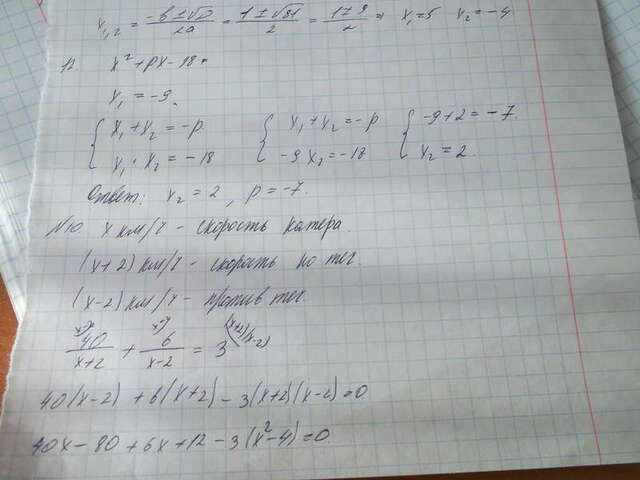 x₁,₂ = (-b ± √D)/2a = (1 ± √81)/2 = (1 ± 9)/2 ⇒ x₁ = 5 x₂ = -4
x² + px - 18
x₁ = -9.
{ x₁ + x₂ = -p { x₁ + x₂ = -p { -9 + 2 = -7.
{ x₁ · x₂ = -18 { -9 x₂ = -18 { x₂ = 2.
Ответ: x₂ = 2, p = -7.
№10. x км/ч - скорость катера.
(x+2) км/ч - скорость по теч.
(x-2) км/ч - против теч.
40/(x+2) + 6/(x-2) = 3 (x+2)(x-2)
40(x-2) + 6(x+2) - 3(x+2)(x-2) = 0
40x - 80 + 6x + 12 - 3(x² - 4) = 0